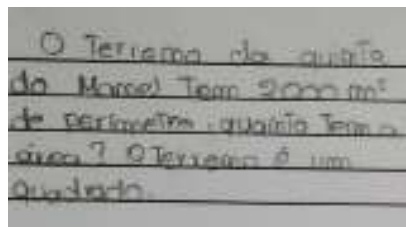 O Terreno da quinta
do Marcel Tem 2000 m²
de perimetro, quanto Tem a
área? O Terreno é um
quadrado.